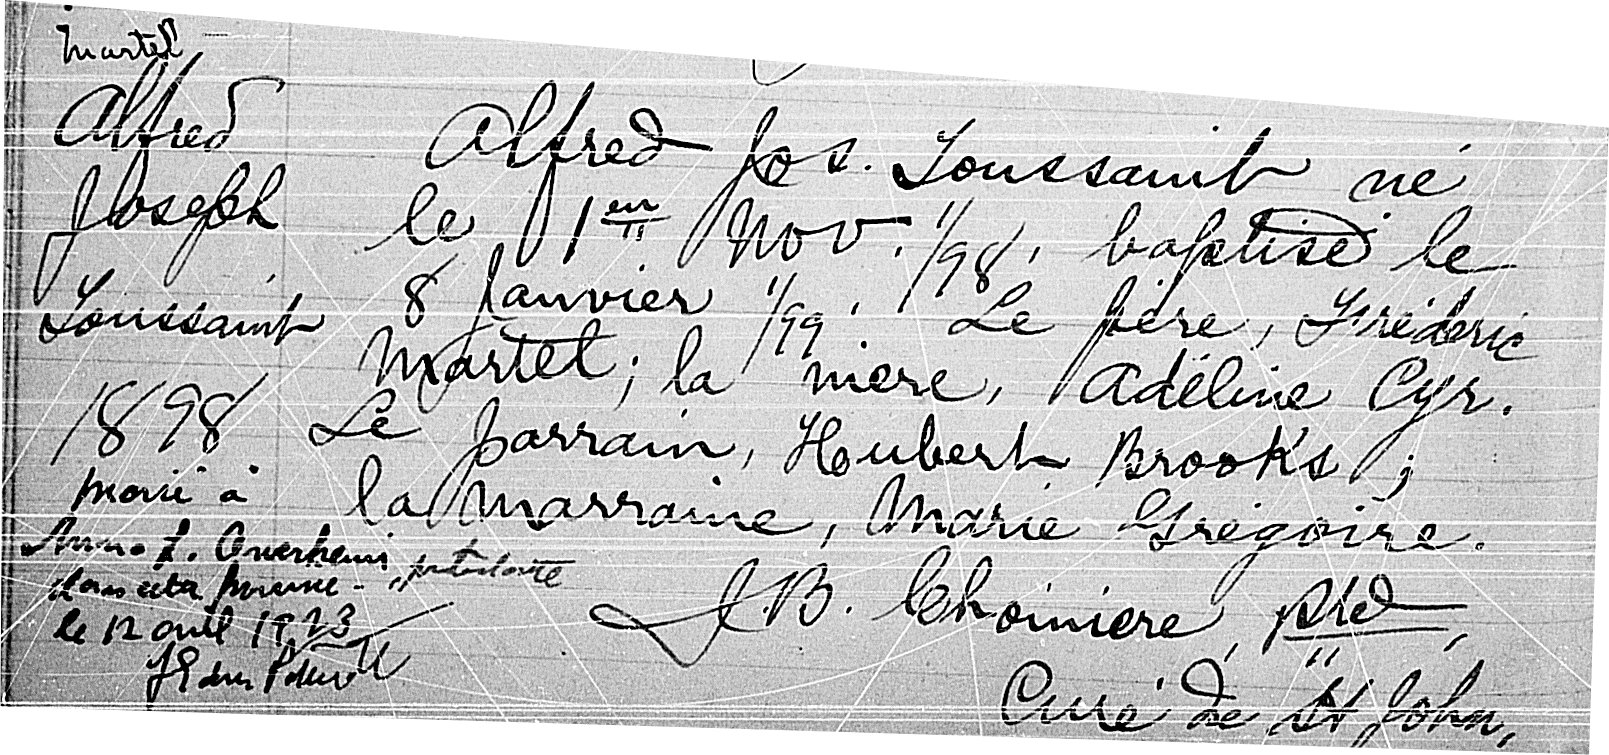 Martel
Alfred
Joseph
Toussaint
1898
Marié à
Anna
dans cette
le 12 avril 1923
Alfred Jos. Toussaint né
le 1er Nov. 1/98, baptisé le
8 Janvier 1/99. Le père, Fréderic
Martel; la mère, Adéline Cyr.
Le parrain, Houbert Brooks;
la marraine, Marie Grégoire.
J.B. Choiniere, ptr,
Curé de St John,